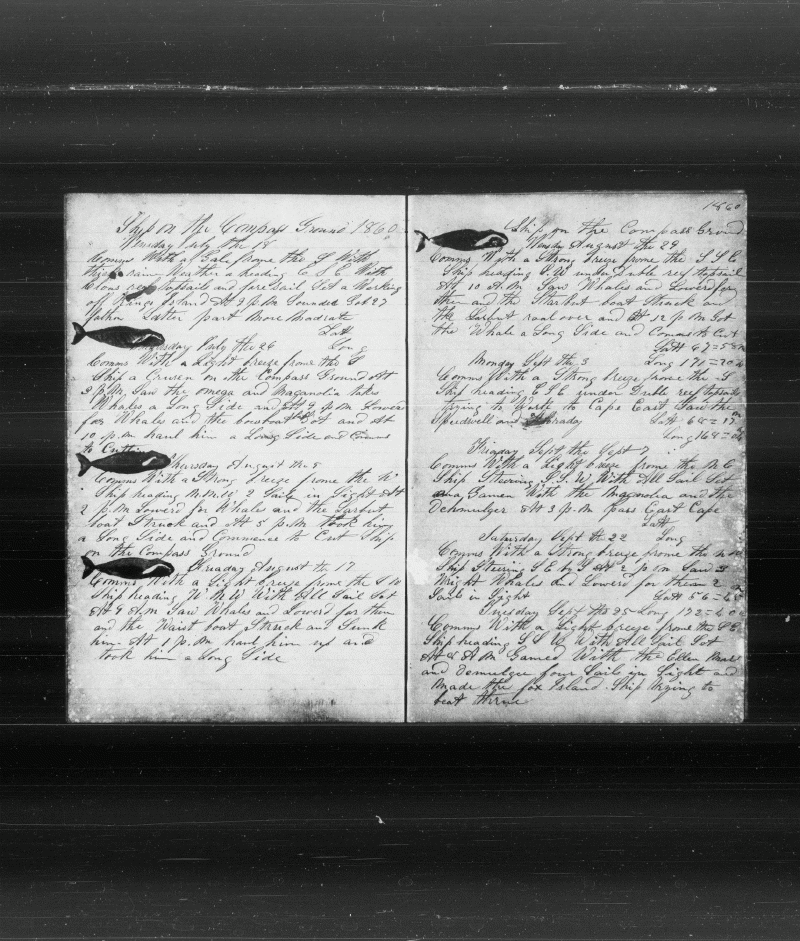 Ship on the Compass Ground 1860
Wensday July the 18
Comms With a Gale frome the S With
thick rain Weather a heading E S E With
Clous reef topsails and fore sail Set a Working
of Kings Island At 9 p.m Sounded Got 27
fathom Latter part More Madrate
Latt
Thursday July the 26 Long
Comms With a Light freeze frome the S
Ship a Crusen on the Compass Ground At
3 P.M. Saw thy omega and Magnolia take
Whales a Long Side and At 9 p.m Lowerd
for Whales and the bowboat Got and At
10 p.m haul him a Long Side and Comms
to Cutting
Thursday August the
Comms With a Strong breeze frome the W
Ship heading N.N.W. 2 Sails in Sight At
2 p.m Lowerd for Whales and the Larbut
boat Struck and At 5 p.m took him
a Long Side and Commence to Cut Ship
on the Compass Ground
Friaday August the 17
Comms With a Light breeze frome the S W
Ship heading W N W With All Sail Set
At 9 A.m Saw Whales and Lowerd for them
and the Waist boat Struck and Sunk
him At 1 p.m haul him up and
took him a Long Side
1860
Ship on the Compass Ground
Wensdy August the 29
Comms With a Strong breeze frome the S S E
Ship heading S.W under duble reef topsail
At 10 A.M Saw Whales and Lowerd for
them and the Starbut boat Struck and
the Larbut roal over and At 12 p.m Got
the Whale a Long Side and Comms to Cut
Latt 67=5
Monday Sept the 3 Long 170=20
Comms With a Strong breeze frome the S
Ship heading E S E under Duble reef topsails
trying to Work to Cape East Saw the
Speedwell and Latt 68=17
Long 169=
Friaday Sept the Sept 7
Comms With a Light breeze frome the N E
Ship Steering S.S.W. With All Sail Set
and a Gamen With the Magnolia and the
Ocmulger At 3 P.m pass East Cape
Latt
Saturday Sept th 22 Long
Comms With a Strong breeze frome the
Ship Steering S E by S At 2 p m Saw 3
Wright Whales and Lowerd for them 2
Sails in Sight Latt 56=
Tuesday Sept th 25 Long 172=40
Comms With a Light breeze frome the S E
Ship heading S S W With All Sail Set
At 8 A M Gamed With the Ellen
and Ocmulgee four Sail in Sight and
Made the fox Island Ship trying to
beat threw